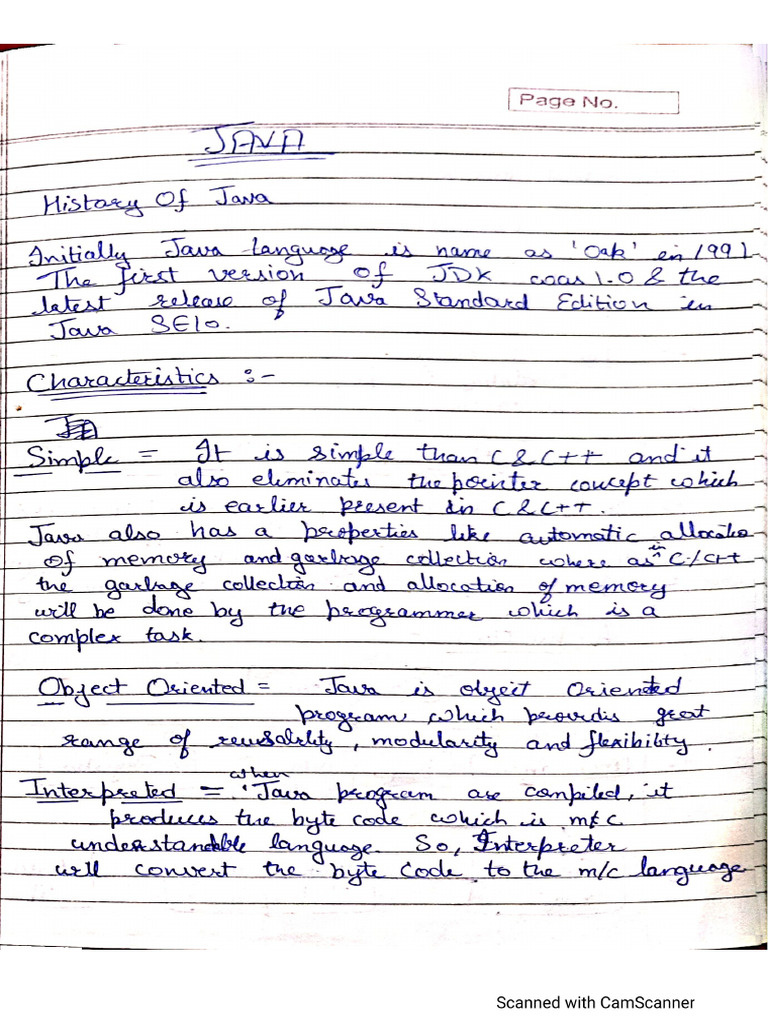 Page No.
JAVA
History Of Java
Initially Java language is name as 'Oak' in 1991
The first version of JDK was 1.0 & the
latest release of Java Standard Edition in
Java SE10.
Characteristics :-
Simple = It is simple than C & C++ and it
also eliminates the pointer concept which
is earlier present in C & C++.
Java also has a properties like automatic allocatio
of memory and garbage collection where as in C/C++
the garbage collection and allocation of memory
will be done by the programmer which is a
complex task.
Object Oriented = Java is object Oriented
program, which provdis great
range of reusability, modularity and flexibility.
Interpreted = when Java program are compiled, it
produces the byte code which is m/c
understandable language. So, Interpreter
will convert the byte code to the m/c language
Scanned with CamScanner